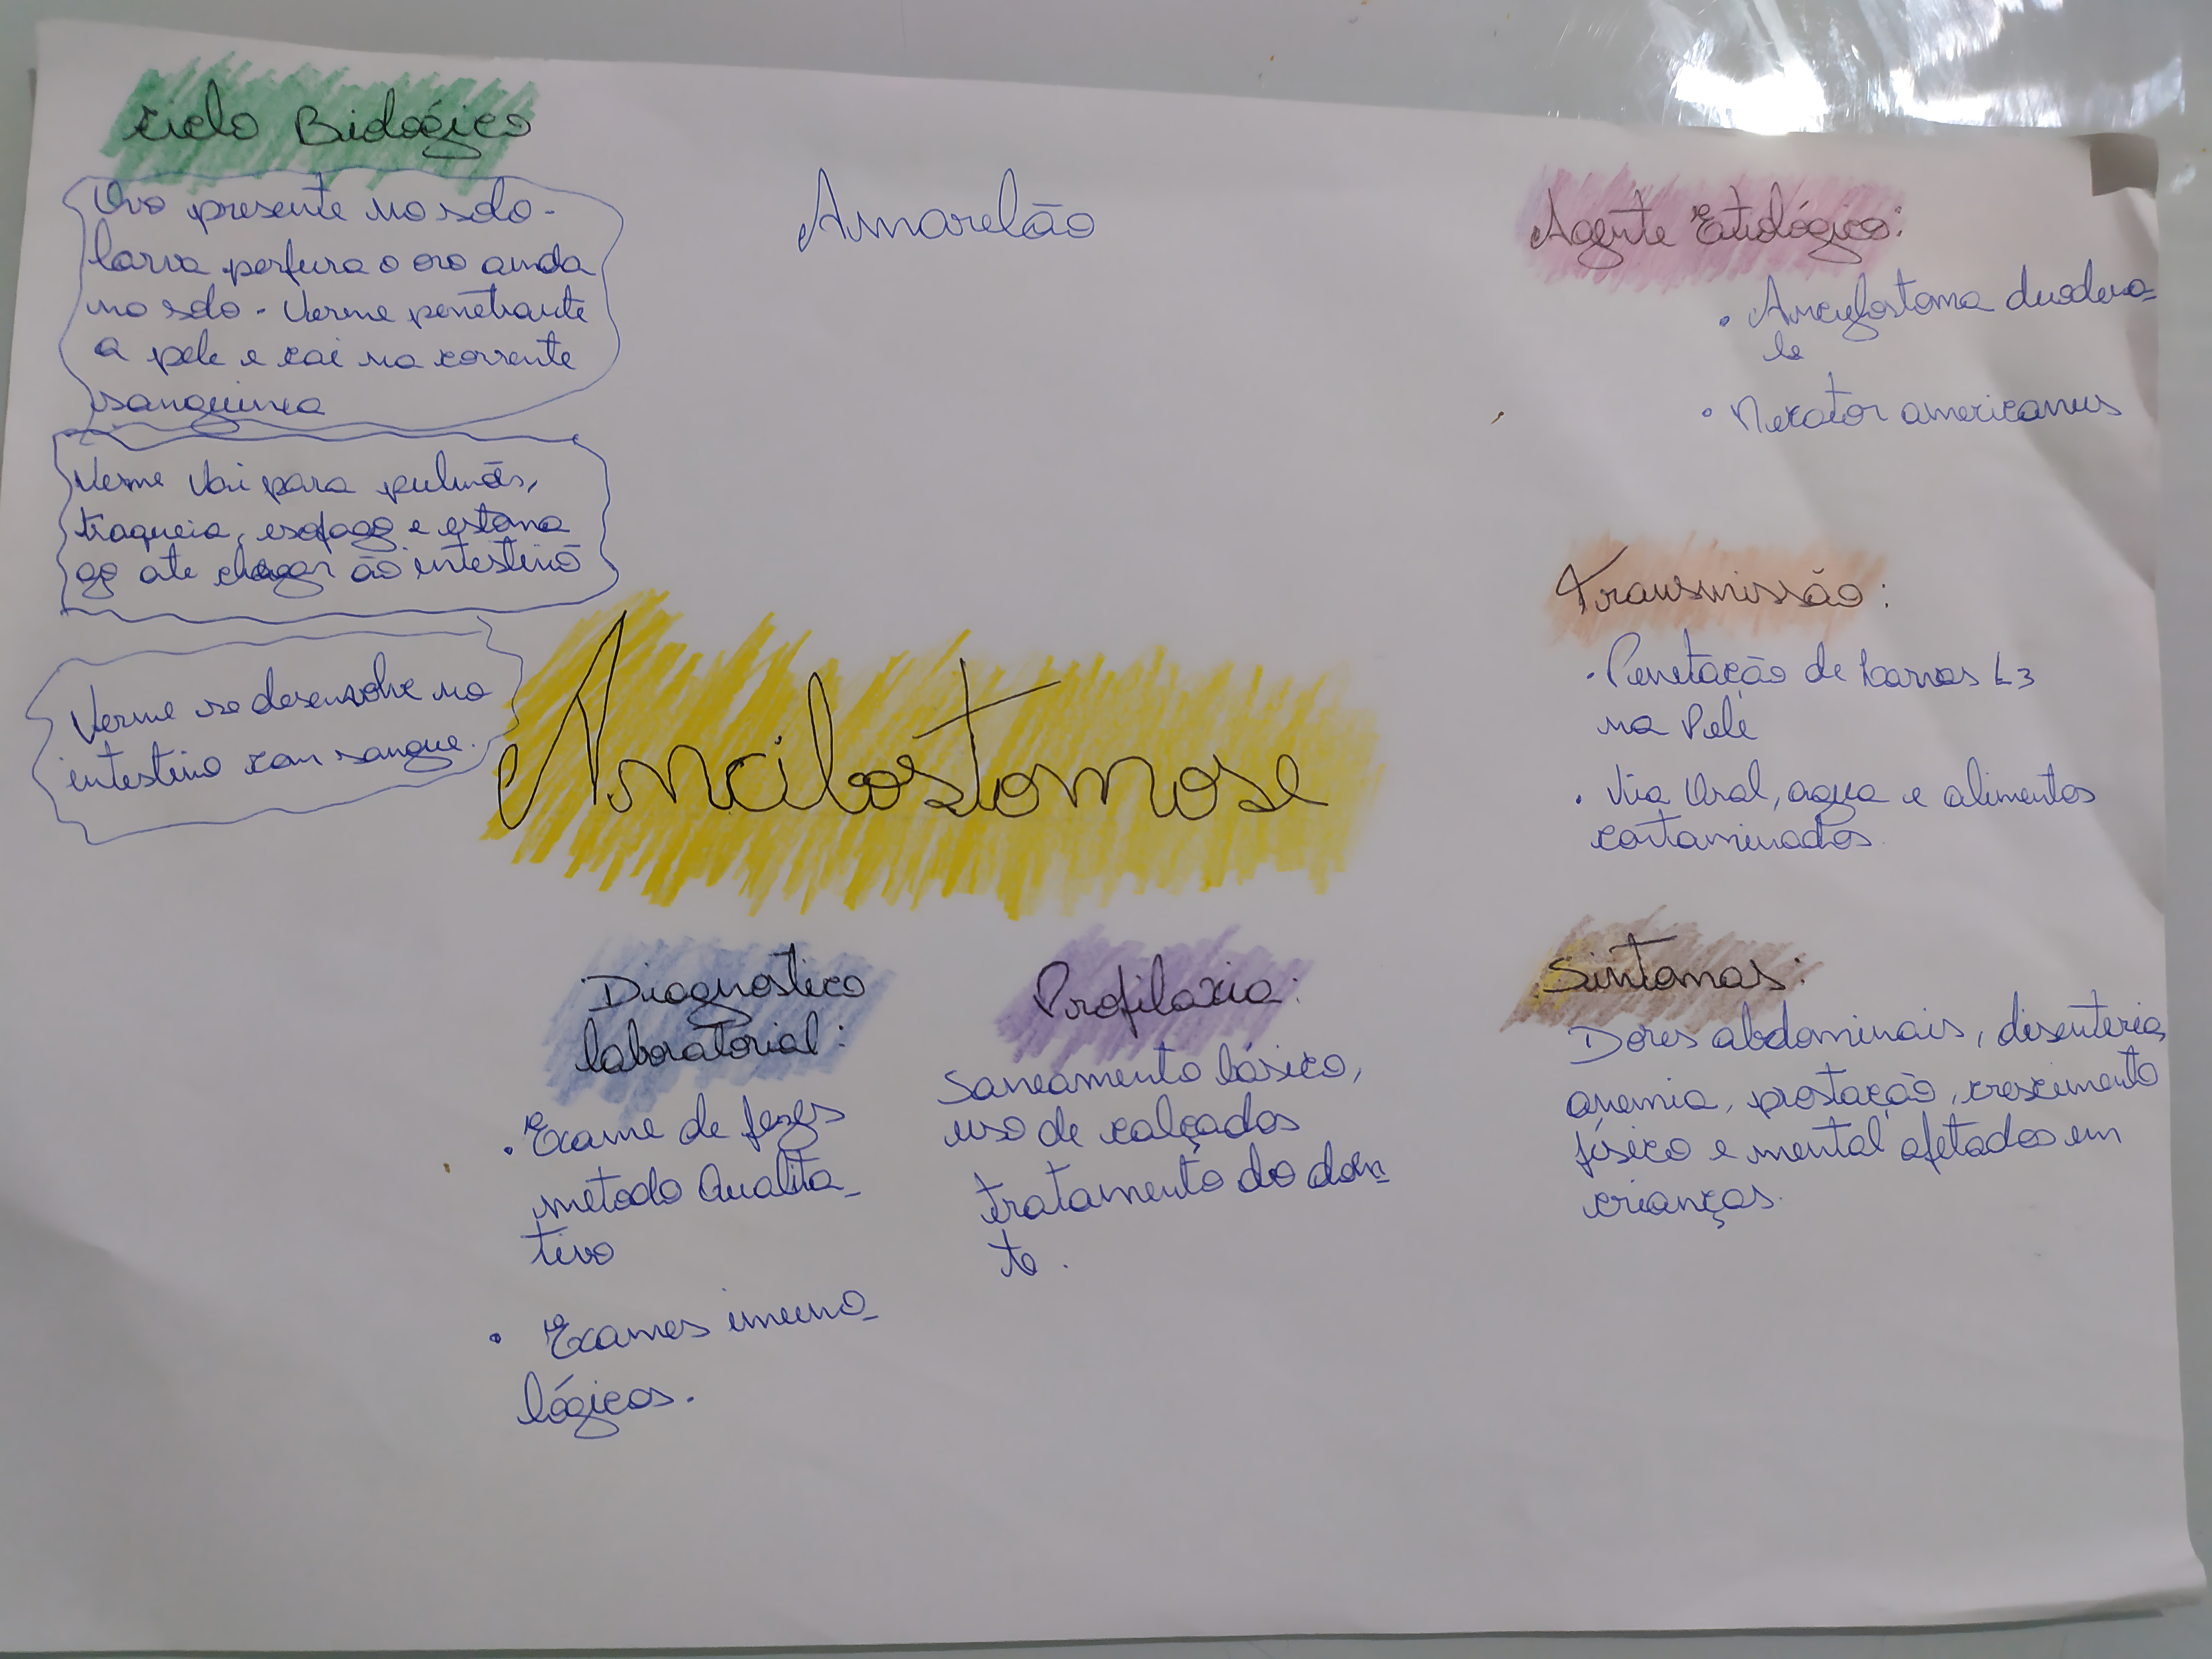 Ciclo Biológico
Ovo presente no solo -
larva perfura o ovo ainda
no solo - Verme penetrante
a pele e cai na corrente
sanguinea
Verme vai para pulmões,
traqueia, esofago e estoma
go ate chegar ao intestino
Verme se desenvolve no
intestino com sangue.
Amarelão
Ancilostomose
Agente Etiológico:
• Ancylostoma duodena-
le
• Necator americanus
Transmissão:
• Penetação de larvas L3
na Pele
• Via Oral, agua e alimentos
contaminados
Sintomas:
Dores abdominais, disenteria,
anemia, prostação, crescimento
físico e mental afetados em
crianças.
Diagnostico
laboratorial:
• Exame de fezes
metodo Qualita-
tivo
• Exames imuno-
lógicos.
Profilaxia:
Saneamento básico,
uso de calçados
tratamento do doen-
te.